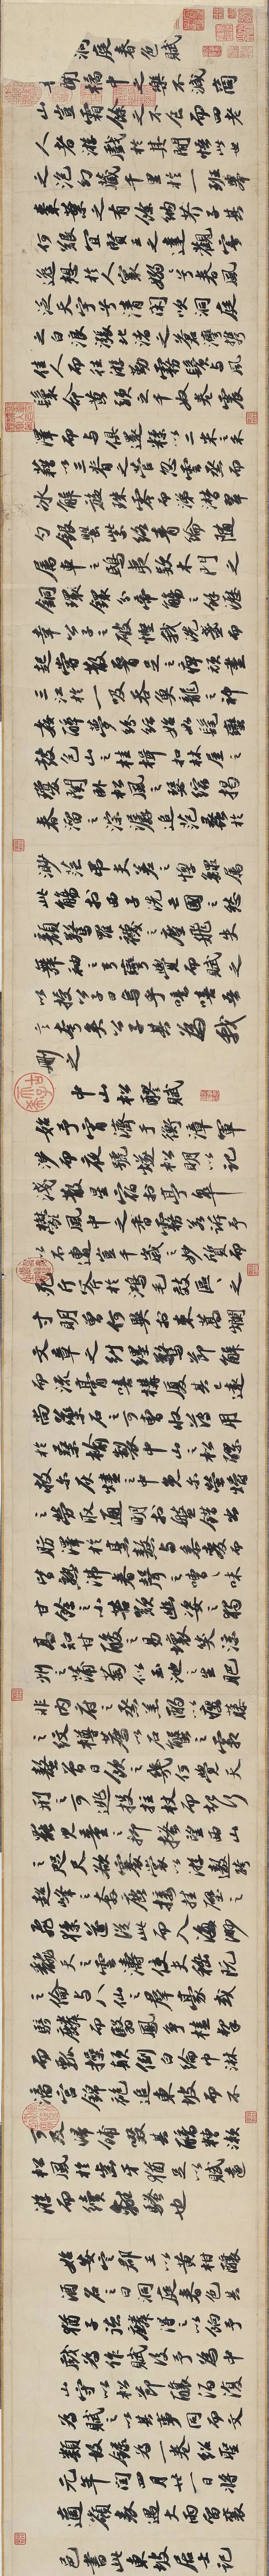 洞庭春色賦
吾聞橘中之樂不減商
山豈霜餘之不食而四老
人者游戲於其間悟此世
之泡幻藏千里於一班舉
棗葉之有餘納芥子其
何艱宜賢王之達觀寄
逸想於人寰嫋嫋兮春風
泛天宇兮清閑吹洞庭
之白浪漲北渚之蒼灣攜
佳人而往游勤霧鬢與風
鬟命黃頭之千奴卷震
澤而與俱還糅以二米之禾
藉以三脊之菅忽雲烝而
冰解旋珠零而涕潸翠
勺銀罌紫絡青綸隨
屬車之鴟夷款木門之
銅鐶分帝觴之餘瀝
幸公子之破慳我洗盞而
起嘗散腰足之痹頑盡
三江於一吸吞魚龍之神
姦醉夢紛紜始如髦蠻
鼓包山之桂楫扣林屋之
瓊關臥松風之瑟縮揭
春溜之淙潺追范蠡於
渺茫弔夫差之惸鰥屬
此觴於西子洗亡國之愁
顏驚羅襪之塵飛失
舞袖之弓彎覺而賦之
以授公子曰烏乎噫嘻吾
言夸矣公子其為我
刪之
中山松醪賦
始予宵濟於衡漳軍
涉而夜號燧松明以記
淺散星宿於亭皋
鬱風中之香霧若訴予
以不遭豈千歲之妙質而
死斤斧於鴻毛效區區之
寸明曾何異於束蒿爛
文章之糾纆驚節解
而流膏嘻構廈其已遠
尚藥石之可曹收薄用
於桑榆製中山之松醪
救爾灰燼之中免爾螢爝
之勞取通明於盤錯出
肪澤於烹熬與黍麥而
皆熟沸舂聲之嘈嘈味
甘餘之小苦歎幽姿之獨
高知甘酸之易壞笑涼
州之蒲萄似玉池之生肥
非內府之蒸羔酌以癭藤
之紋樽薦以石蟹之霜
螯曾日飲之幾何覺天
刑之可逃投拄杖而起行
罷兒童之抑搔望西山
之咫尺欲褰裳以游遨跨
超峰之奔鹿接挂壁之
飛猱遂從此而入海渺
翻天之雲濤使夫嵇阮
之倫與八仙之群豪或
騎麟而翳鳳爭榼挈
而瓢操顛倒白綸巾淋
漓宮錦袍追東坡而不
可及歸餔歠其醨糟漱
松風於齒牙猶足以賦遠
游而續離騷也
始安定郡王以黃柑釀
酒名之曰洞庭春色其
猶子德麟得之以餉予
戲為作賦後予為中
山守以松節釀酒復
為賦之以其事同而文
類故錄為一卷紹聖
元年閏四月廿一日將
適嶺表遇大雨留襄
邑書此東坡居士記